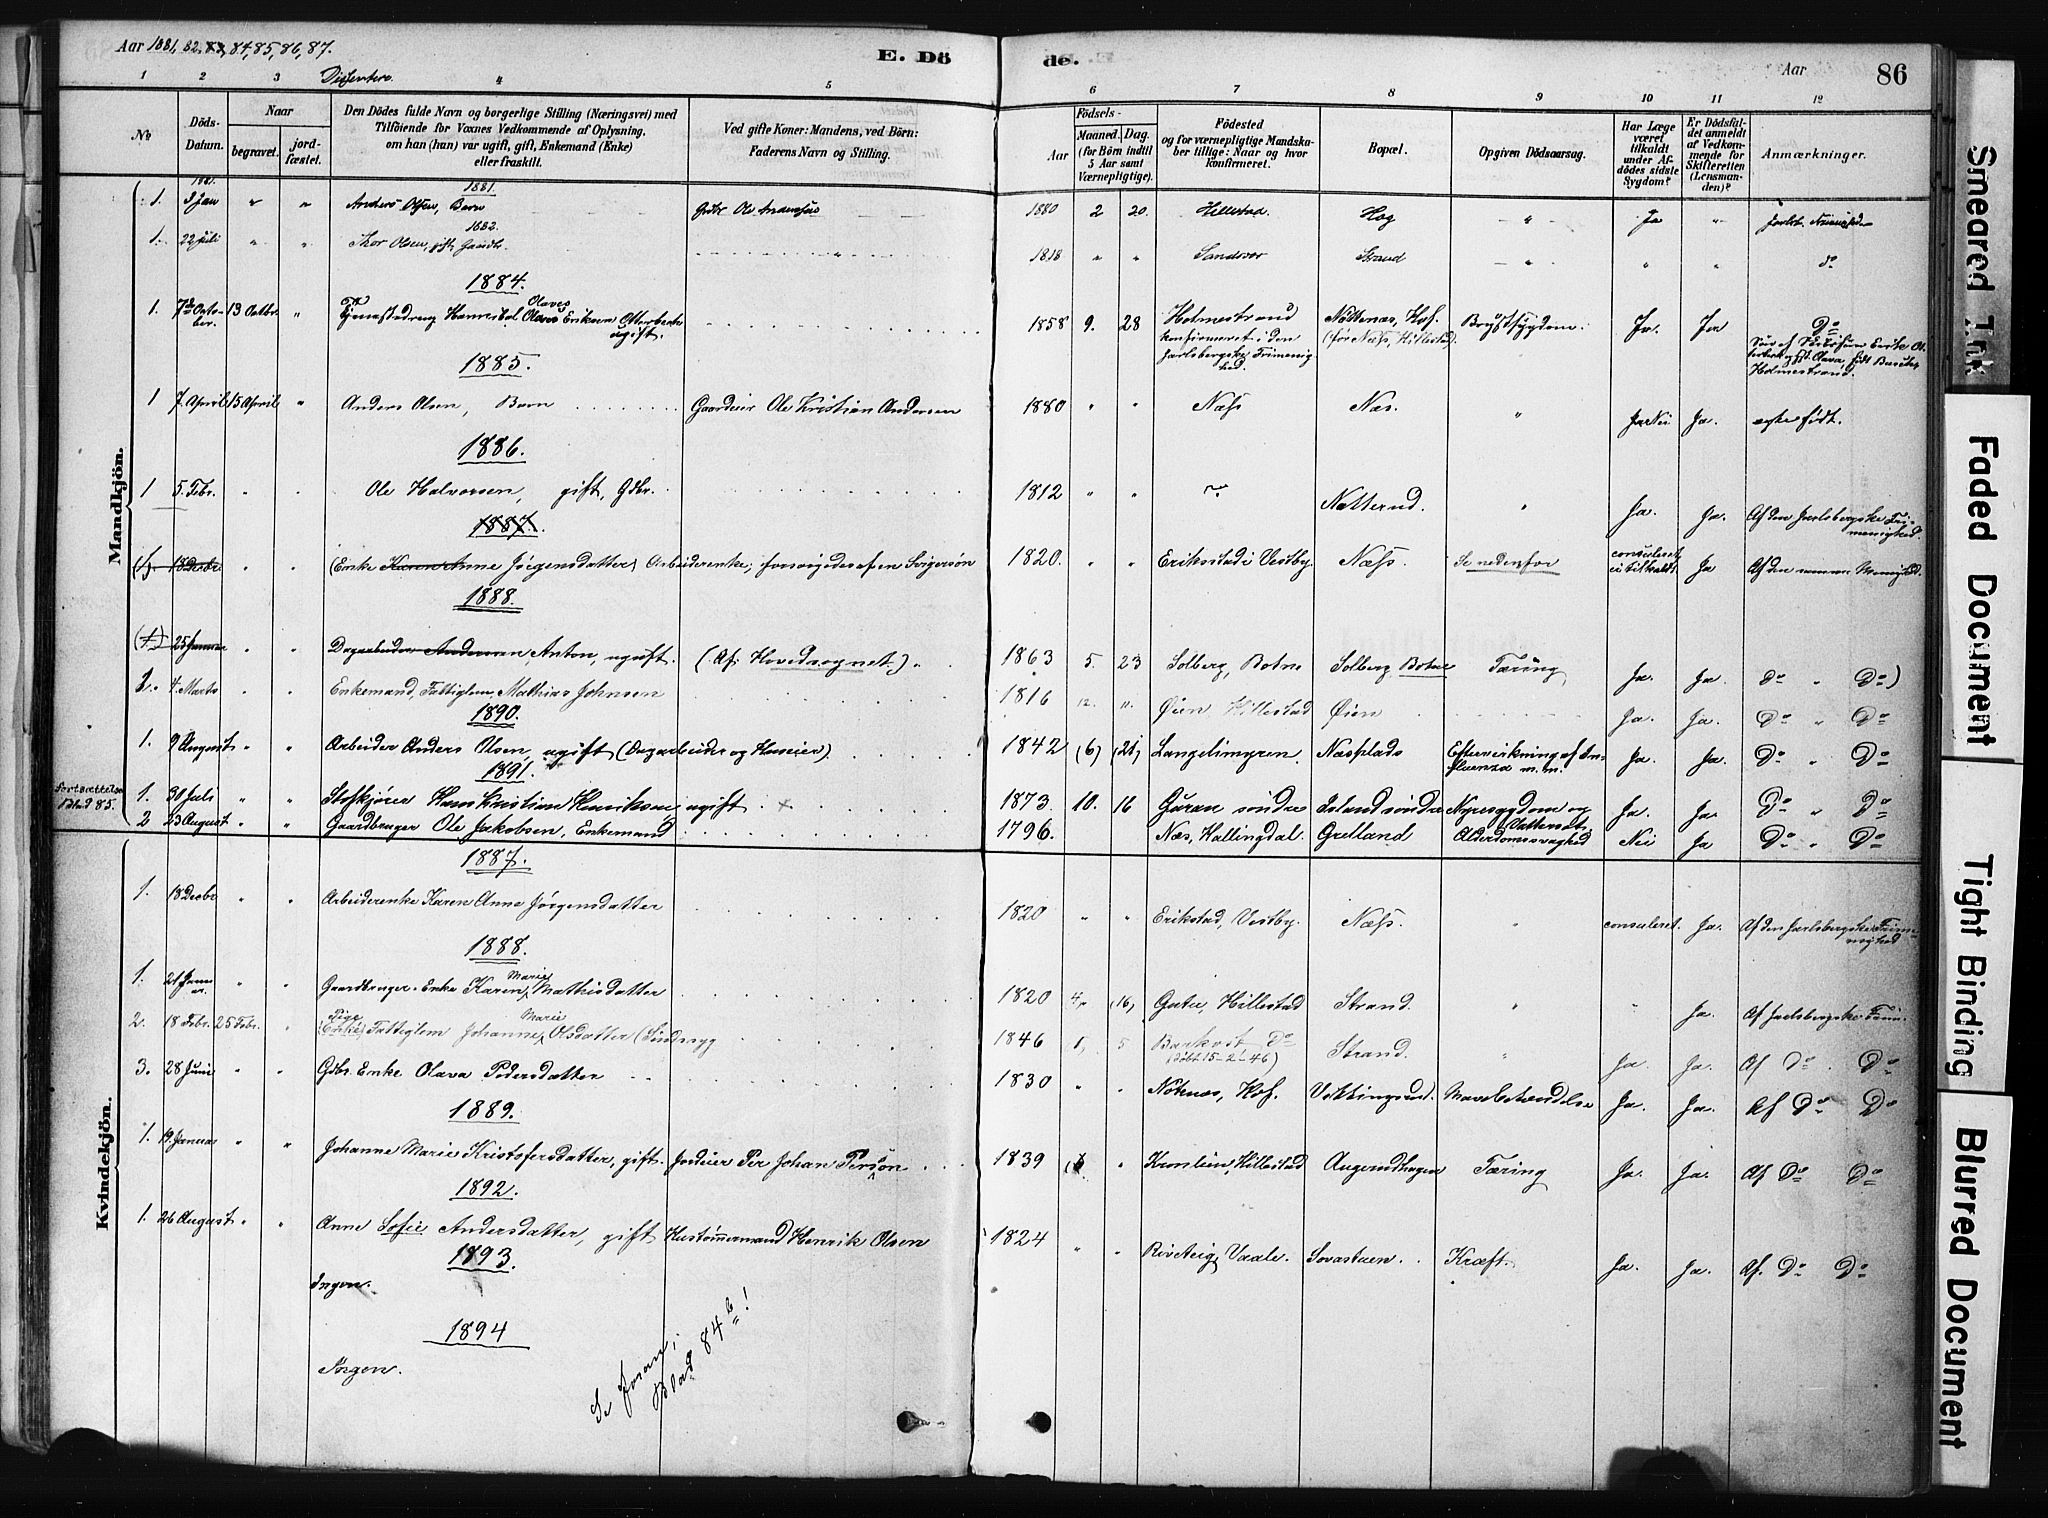 Aar 1881, 82, 83, 84, 85, 86, 87.
E. Dö
de.
Aar
86
Dissentere.
1 2 3 4 5 6 7 8 9 10 11 12
No
Döds-
Datum.
Naar
begravet.
jord-
fæstet.
Den Dödes fulde Navn og borgerlige Stilling (Næringsvei) med
Tilföiende for Voxnes Vedkommende af Oplysning,
om han (hun) var ugift, gift, Enkemand (Enke)
eller fraskilt.
Ved gifte Koner: Mandens, ved Börn:
Faderens Navn og Stilling.
Födsels-
Aar
Maaned.
Dag.
(for Börn indtil
5 Aar samt
Værnepligtige).
Födested
og for værnepligtige Mandska-
ber tillige: Naar og hvor
konfirmeret.
Bopæl.
Opgiven Dödsaarsag.
Har Læge
været
tilkaldt
under Af-
dödes sidste
Sygdom?
Er Dödsfal-
det anmeldt
af Vedkom-
mende for
Skifteretten
(Lensman-
den)?
Anmærkninger.
Mandkjön.
1881.
1881.
1. 3 Jan " " Anders Olsen, Barn Gdbr Ole Andersen 1880 2 20. Hillestad. Hag " Ja "
1882.
1. 22 Juli " " Thor Olsen, gift Gaardbr. 1818 " " Sandsvær Strand " " " do
1884.
1. 7de Octo-
ber. 13 Octbr. " Tjenestedreng Hannibal Olaves Eriksen Otterbech
ugift. 1858 9. 28 Holmestrand Nöttenæs, Hof. Brystsygdom. Ja. Ja Do
konfirmeret i den (för Næss, Hillestad)
Jarlsbergske Frimenig
hed.
Holmestrand.
1885.
1 7 April 15 April " Anders Olsen, Barn Gaardeier Ole Kristian Andersen 1880 " " Næss Næs. " Nei Ja. ægte födt.
1886.
1 5. Febr. " " Ole Halvorsen, gift, Gdbr. 1812 " " Nøtterud. " Ja. Ja. Af den Jarlsbergske Fri-
menighed.
1887.
18 Decbr " " (Enke Karen Anne Jörgensdatter) Arbeiderenke; forsörgedes af en Svigersön 1820 " " Erikstad i Vestby. Næss. Se nedenfor consuleret
ei tilkaldt Ja Af den samme Menighed.
1888.
(1) 25 Januar " " Dagarbeider Andersen Anton, ugift. (Af Hovedsognet.) 1863 5. 23 Solberg, Botne Solberg, Botne Tæring Ja. Ja. Do " Do)
1. 4. Marts " " Enkemand, Fattiglem, Mathias Johnsen 1816 12. 11. Øien Hillestad Øien Ja. Ja. Do " Do
1890.
1. 9 August " " Arbeider Anders Olsen, ugift (Dagarbeider og Huseier) 1842 (6) (21) Langelimyren. Næsplads Eftervirkning af In-
fluenza m.m. Ja. Ja. Do " Do
1891.
Fortsættelse
Blad 85.
1. 30 Juli " " Hans Kristian Henriksen, ugift 1873 10. 16 Guran söndre Island söndre Nyresygdom og
Vattersot. Ja. Ja. Do " Do
2 23 August " " Gaardbruger Ole Jakobsen, Enkemand 1796. Næs, Hallingdal. Grelland Alderdomssvaghed Nei Ja Do " Do
Kvindekjön.
1887.
1. 18 Decbr " " Arbeiderenke Karen Anne Jörgensdatter 1820 " " Erikstad, Vestby. Næss. " consuleret. Ja. Af den Jarlsbergske Frime-
nighed
1888.
1. 21 Janu
ar. " " Gaardbruger-Enke Karen Marie Mathisdatter 1820 4. 16, Gute, Hillestad Strand. " " Ja. Af Jarlsbergske Frim.
2. 18 Febr. 25 Febr. " Pige (Enke) Fattiglem Johanne Marie Olsdatter (Sindssyg 1846 1, 5 Do
(döbt 15-2-46) Strand. " Ja Ja. Af Do. Do
3. 28 Juni " " Gdbr. Enke Olava Pedersdatter 1830 " " Nöknæs, Hof. Vikkingsrud. Mavebetændelse Ja. Ja. Af Do Do
1889.
1. 19. Januar " " Johanne Marie Kristofersdatter, gift. Jordeier Per Johan Person 1839 " Kronlein, Hillestad Angerudhagen Tæring Ja. Ja. Af Do Do
1892.
1. 26 August " " Anne Sofie Andersdatter, gift Hustömmermand Henrik Olsen 1824 " " Rivteig, Vaale. Sovastuen. Kræft. Ja. Ja. Af. Do Do
1893.
Ingen.
1894
Ingen.
Se foran,
Blad 84 b!
Smeared Ink
Faded Document
Tight Binding
Blurred Document